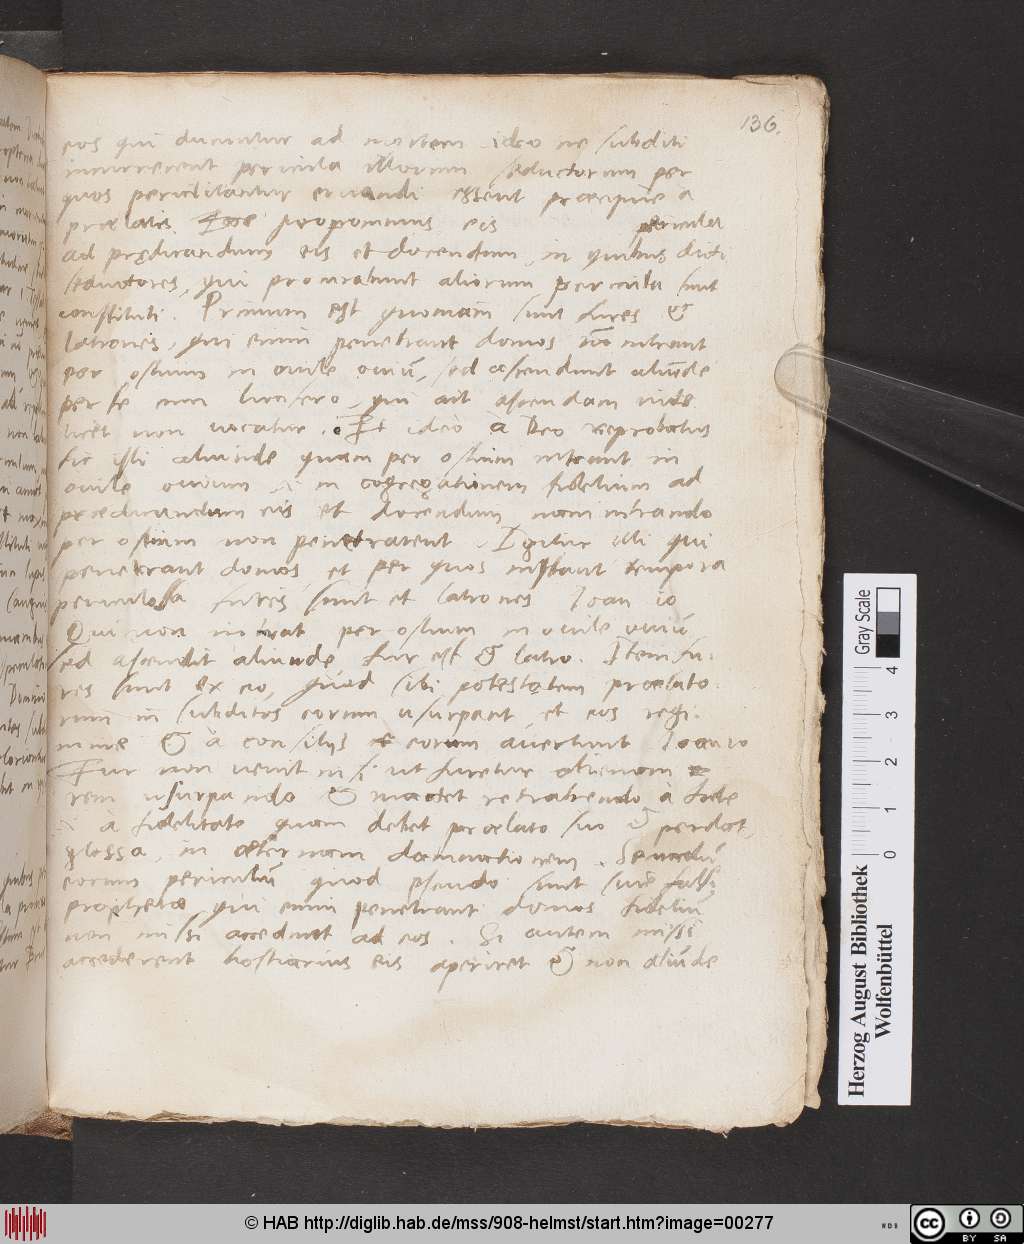 136.
eos qui ducuntur ad mortem ideo ne subditi
incurrerent pericula illorum seductorum per
quos periclitantur eruendi essent præcipue a
prælatis. proponimus eis pericula
ad prędicandum eis et docendum, in quibus dicti
seductores, qui procurabunt aliorum pericula sunt
constituti. Primum est quoniam sunt fures &
latrones, qui enim penetrant domos non intrant
per ostium in ouile ouiū, sed ascendunt aliūde
per se cum lucifero, qui ait ascendam
licet non vocatur. Et ideò à Deo reprobatus
sic isti aliunde quam per ostium intrant in
ouile ouium in cogregationem fidelium ad
prædicandum eis et docendum nam intrando
per ostium non penetrarent. Igitur illi qui
penetrant domos et per quos instant tempora
periculossa fures sunt et latrones Ioan 10
Qui non intrat per ostium in ouile ouiū
sed ascendit aliunde fur est & latro. Item fu-
res sunt ex eo, quod sibi potestatem prælato
rum in subditos eorum usurpant et eos regi-
mine & à consilijs eorum avertunt Ioan 10
Fur non venit nisi ut furetur alienam
rem usurpando & mactet retrahendo à fide
à fidelitate quam debet prælato suo & perdat,
glossa, in æternam damnationem. Secundū
eorum periculū quod pseudo sunt siue falsi
prophetæ, qui enim penetrant domos fideliū
non missi accedunt ad eos. Si autem missi
accederent hostiarius eis aperiret & non aliūde
Herzog August Bibliothek
Wolfenbüttel
Gray Scale
0 1 2 3 4
© HAB http://diglib.hab.de/mss/908-helmst/start.htm?image=00277
WDB
cc BY SA